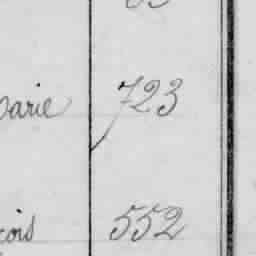 arie 723
cois 552